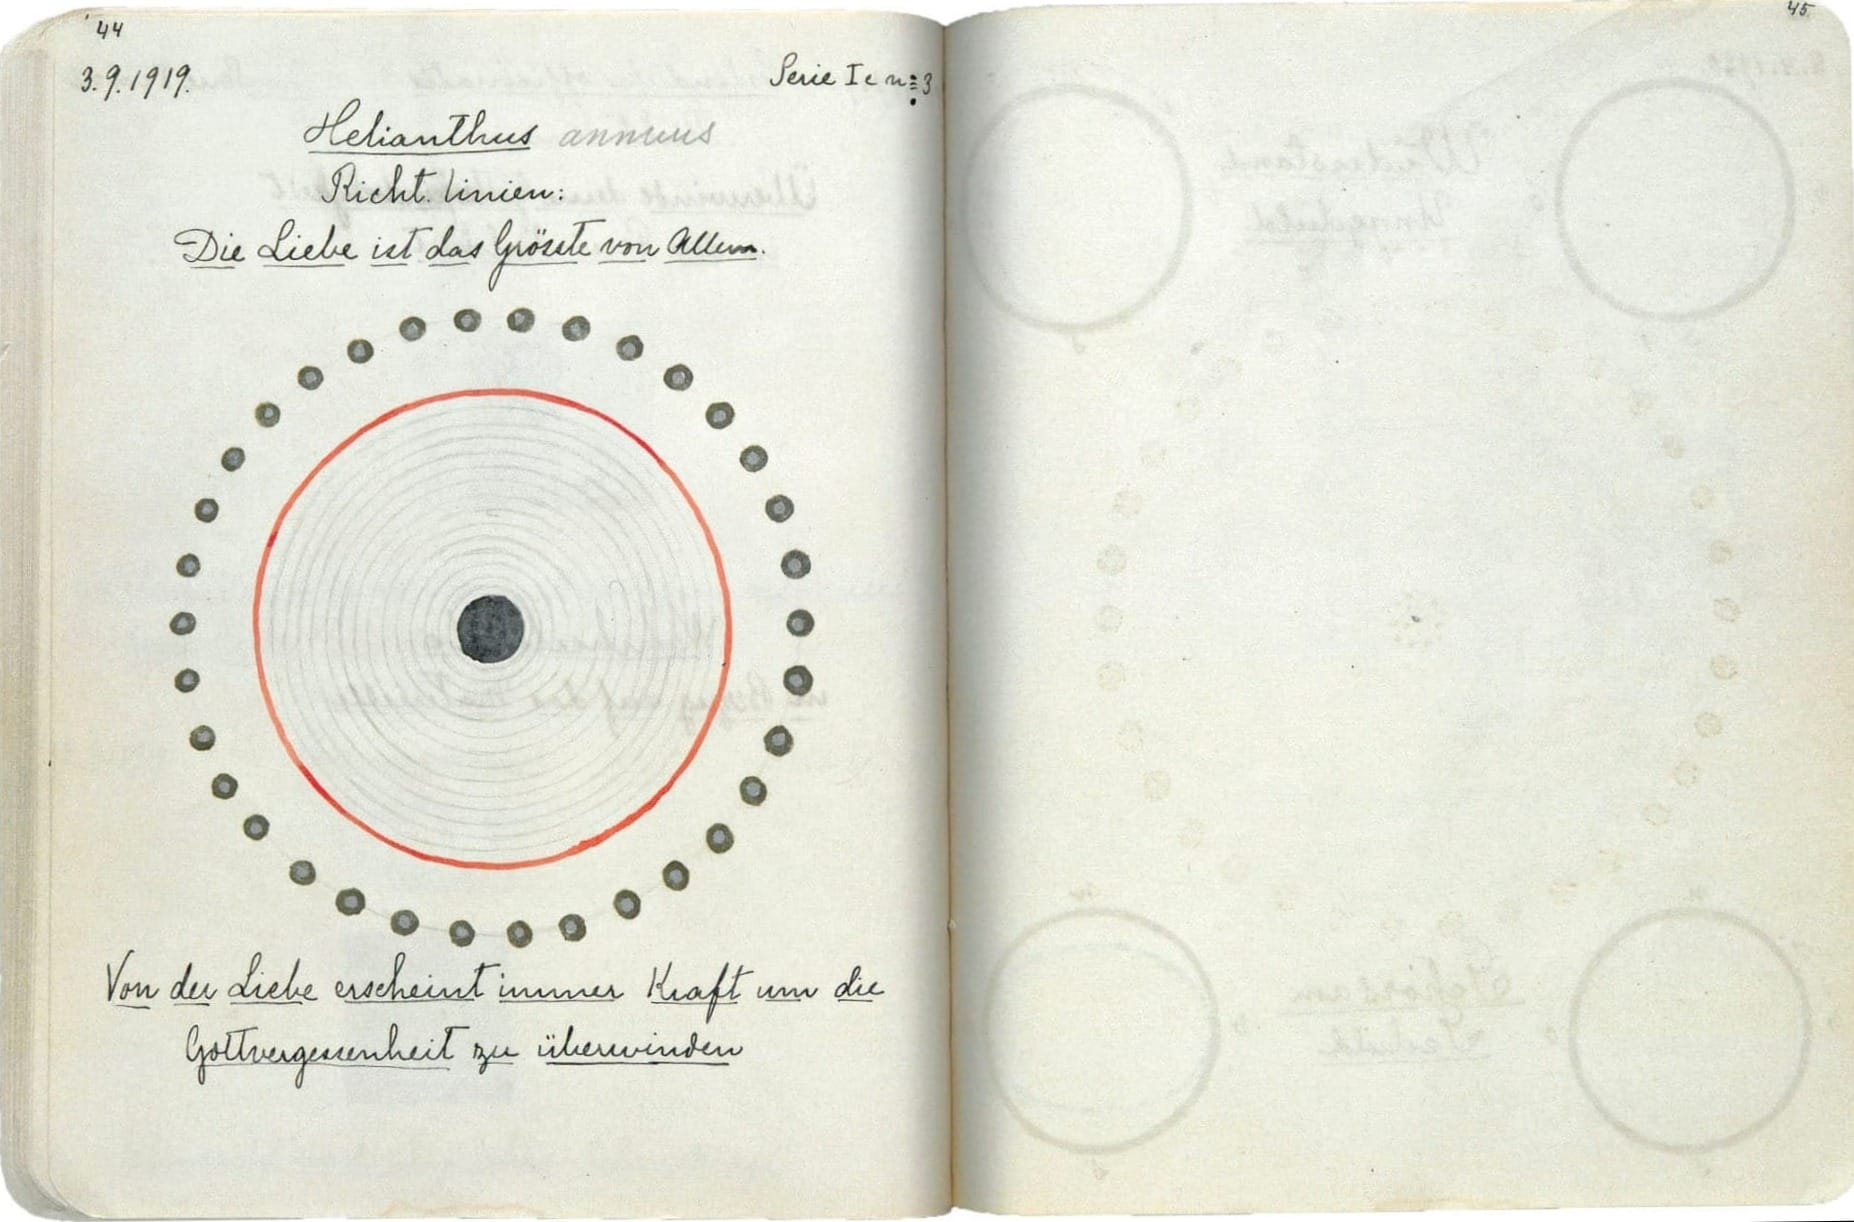 44
3.9.1919.
Serie I c nº 3
Helianthus annuus
Richt.linien:
Die Liebe ist das Grösste von Allem.
Von der Liebe erscheint immer Kraft um die
Gottvergessenheit zu überwinden
45